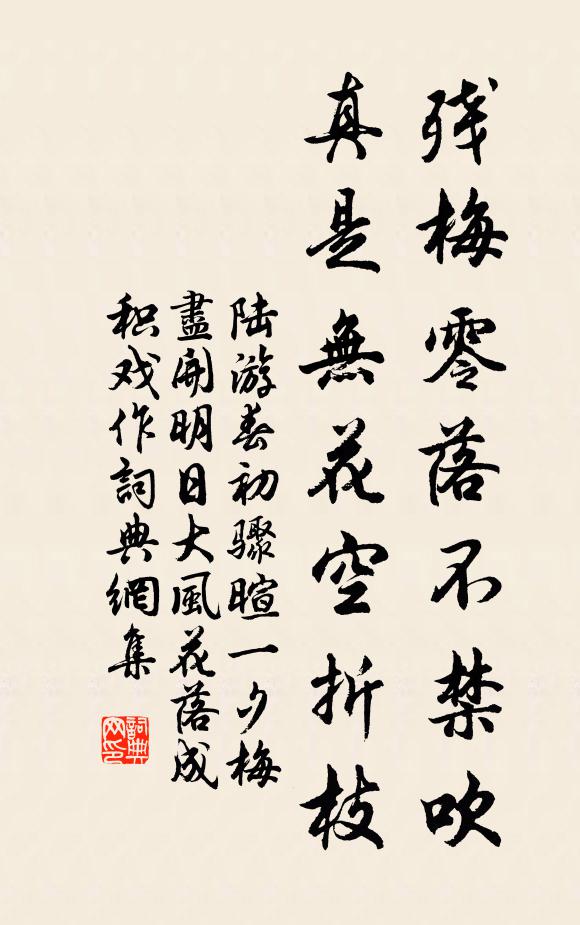 残梅零落不禁吹
真是無花空折枝
陆游春初骤暄一夕梅
盡開明日大風花落成
积戏作詞典網集
詞典网印